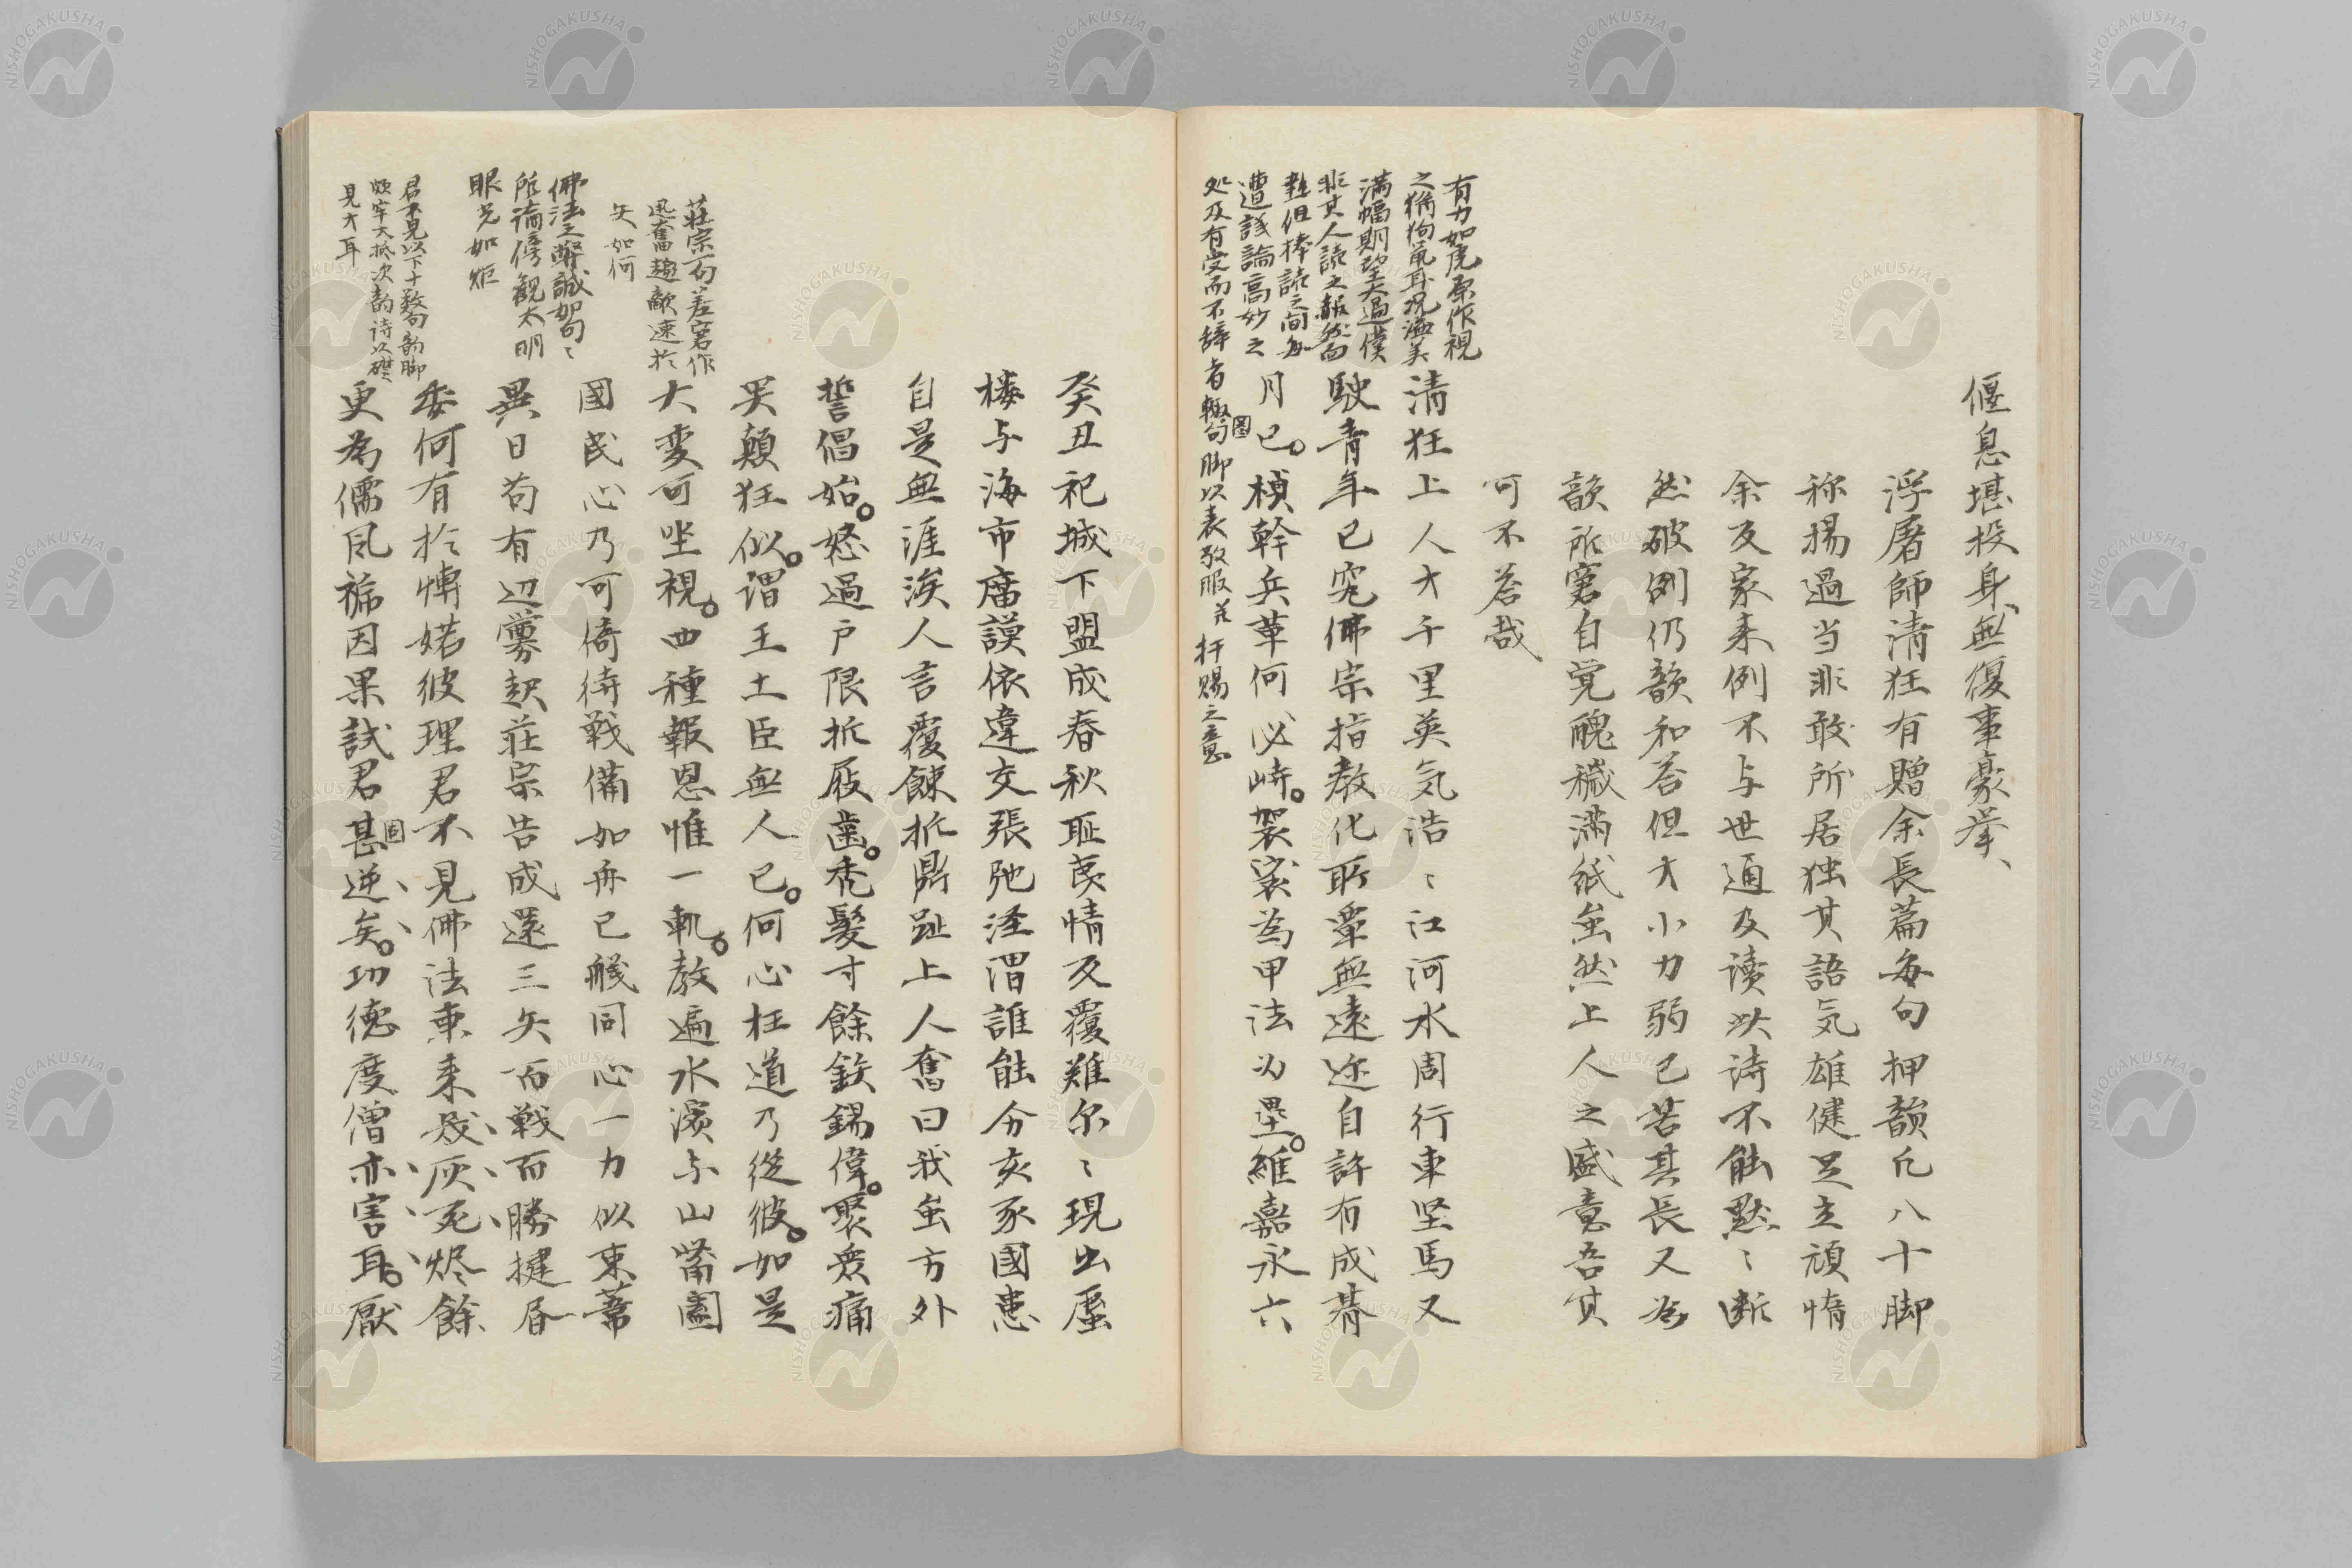 偃息堪投身、無復事豪挙、
浮屠師清狂有贈余長篇毎句押韻凡八十脚
称揚過当非敢所居独其語気雄健足立頑惰
余友家来例不与世通及読此詩不能黙〻断
然破例仍韻和答但才小力弱已苦其長又為
韻所窘自覚醜穢満紙虽然上人之盛意吾其
可不答哉
有力如虎原作視
之猶狗鼠耳況溢美
満幅期望太過僕
非其人読之赧然而
但棒読之間毎
遭議論高妙之
処及有受而不辞者輙句脚以表敬服並拝賜之意
清狂上人才千里英気浩〻江河水周行車堅馬又
駛青年已究佛宗指教化所覃無遠迩自許有成朞
月已。楨幹兵革何必峙。袈裟為甲法为塁。維嘉永六
圏
癸丑祀城下盟成春秋耻夷情反覆難尓〻現出蜃
楼与海市庿謨依違交張弛泾渭誰能分亥豕國患
自是無涯涘人言覆餗折鼎趾上人奮曰我虽方外
誓倡始。怒過户限折屐歯。禿髮寸餘錻錫偉。聚衆痛
哭顛狂似。謂王土臣無人已。何心枉道乃従彼。如是
大変可坐視。四種報恩惟一軌。教遍水濱与山觜圄
國民心乃可倚待戦備如舟已艤同心一力似束葦
異日苟有辺雰起荘宗告成還三矢一百戦而勝揵昏
委何有於慱婼彼理君不見佛法東来殺灰死燼餘
更為儒風褫因果試君甚逆矣。功徳度僧亦害耳。厭
固
荘宗句差窘作
迅奮趨敵速於
矢如何
佛法之弊誠如句〻
所論傍観太明
眼光如炬
君不見以下十数句韵脚
頗牢大抵次韵詩以礙
見才耳
NISHOGAKUSHA